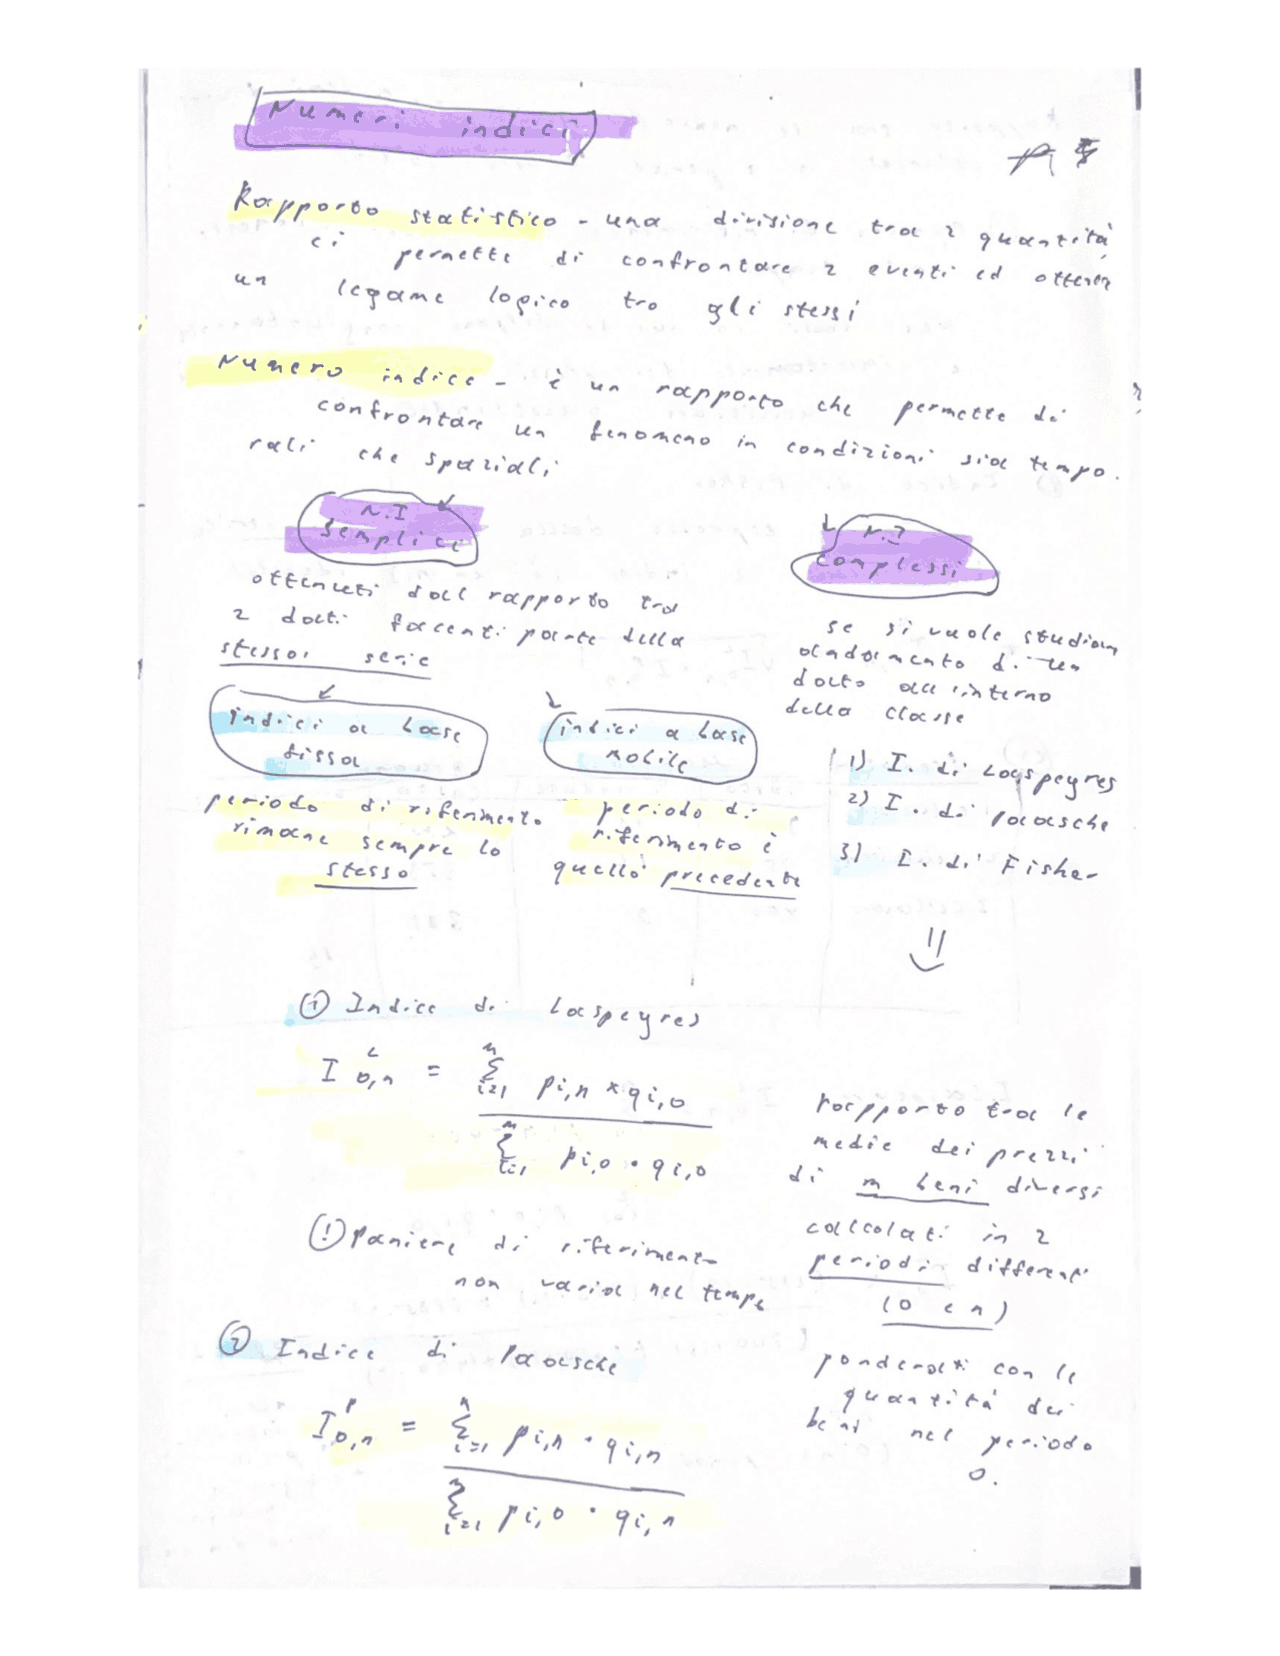 Numeri indici
Rapporto statistico - una divisione tra 2 quantità
ci permette di confrontare 2 eventi ed ottener
un legame logico tra gli stessi
Numero indice - è un rapporto che permette di
confrontare un fenomeno in condizioni sia tempo.
rali che spaziali
N.I
semplici
ottenuti dal rapporto tra
2 dati facenti parte della
stessa serie
N.I
complessi
se si vuole studiare
andamento di un
dato all'interno
della classe
indici a base
fissa
periodo di riferimento
rimane sempre lo
stesso
indici a base
mobile
periodo di
riferimento è
quello precedente
1) I. di Laspeyres
2) I. di Paasche
3) I. di Fisher
⇓
① Indice di Laspeyres
I L 0,n = n Σ i=1 pi,n × qi,0
n Σ i=1 pi,0 · qi,0
(!) Paniere di riferimento
non varia nel tempo
rapporto tra le
medie dei prezzi
di m beni diversi
calcolati in 2
periodi differenti
(0 e n)
ponderati con le
quantità dei
beni nel periodo
0.
② Indice di Paasche
I P 0,n = n Σ i=1 pi,n · qi,n
n Σ i=1 pi,0 · qi,n